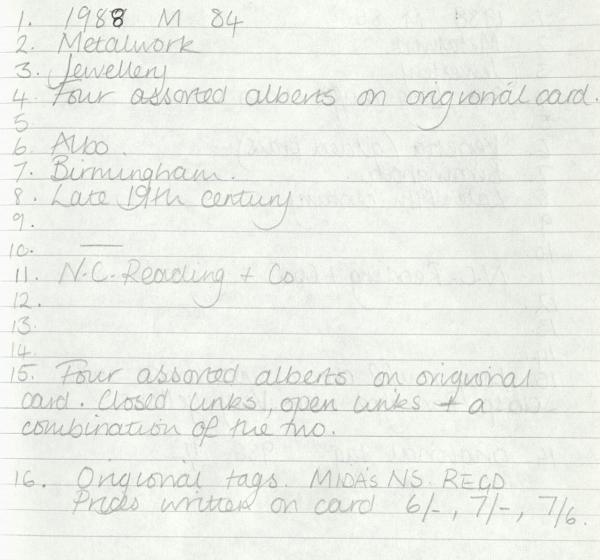 1. 1988 M 84
2. Metalwork
3. Jewellery
4. Four assorted alberts on origional card.
5
6. Albo.
7. Birmingham.
8. Late 19th century
9.
10. —
11. N.C. Reading + Co
12.
13.
14
15. Four assorted alberts on origional
card. Closed links, open links + a
combination of the two.
16. Origional tags. MIDAS NS. REGD
Prices written on card 6/-, 7/-, 7/6.